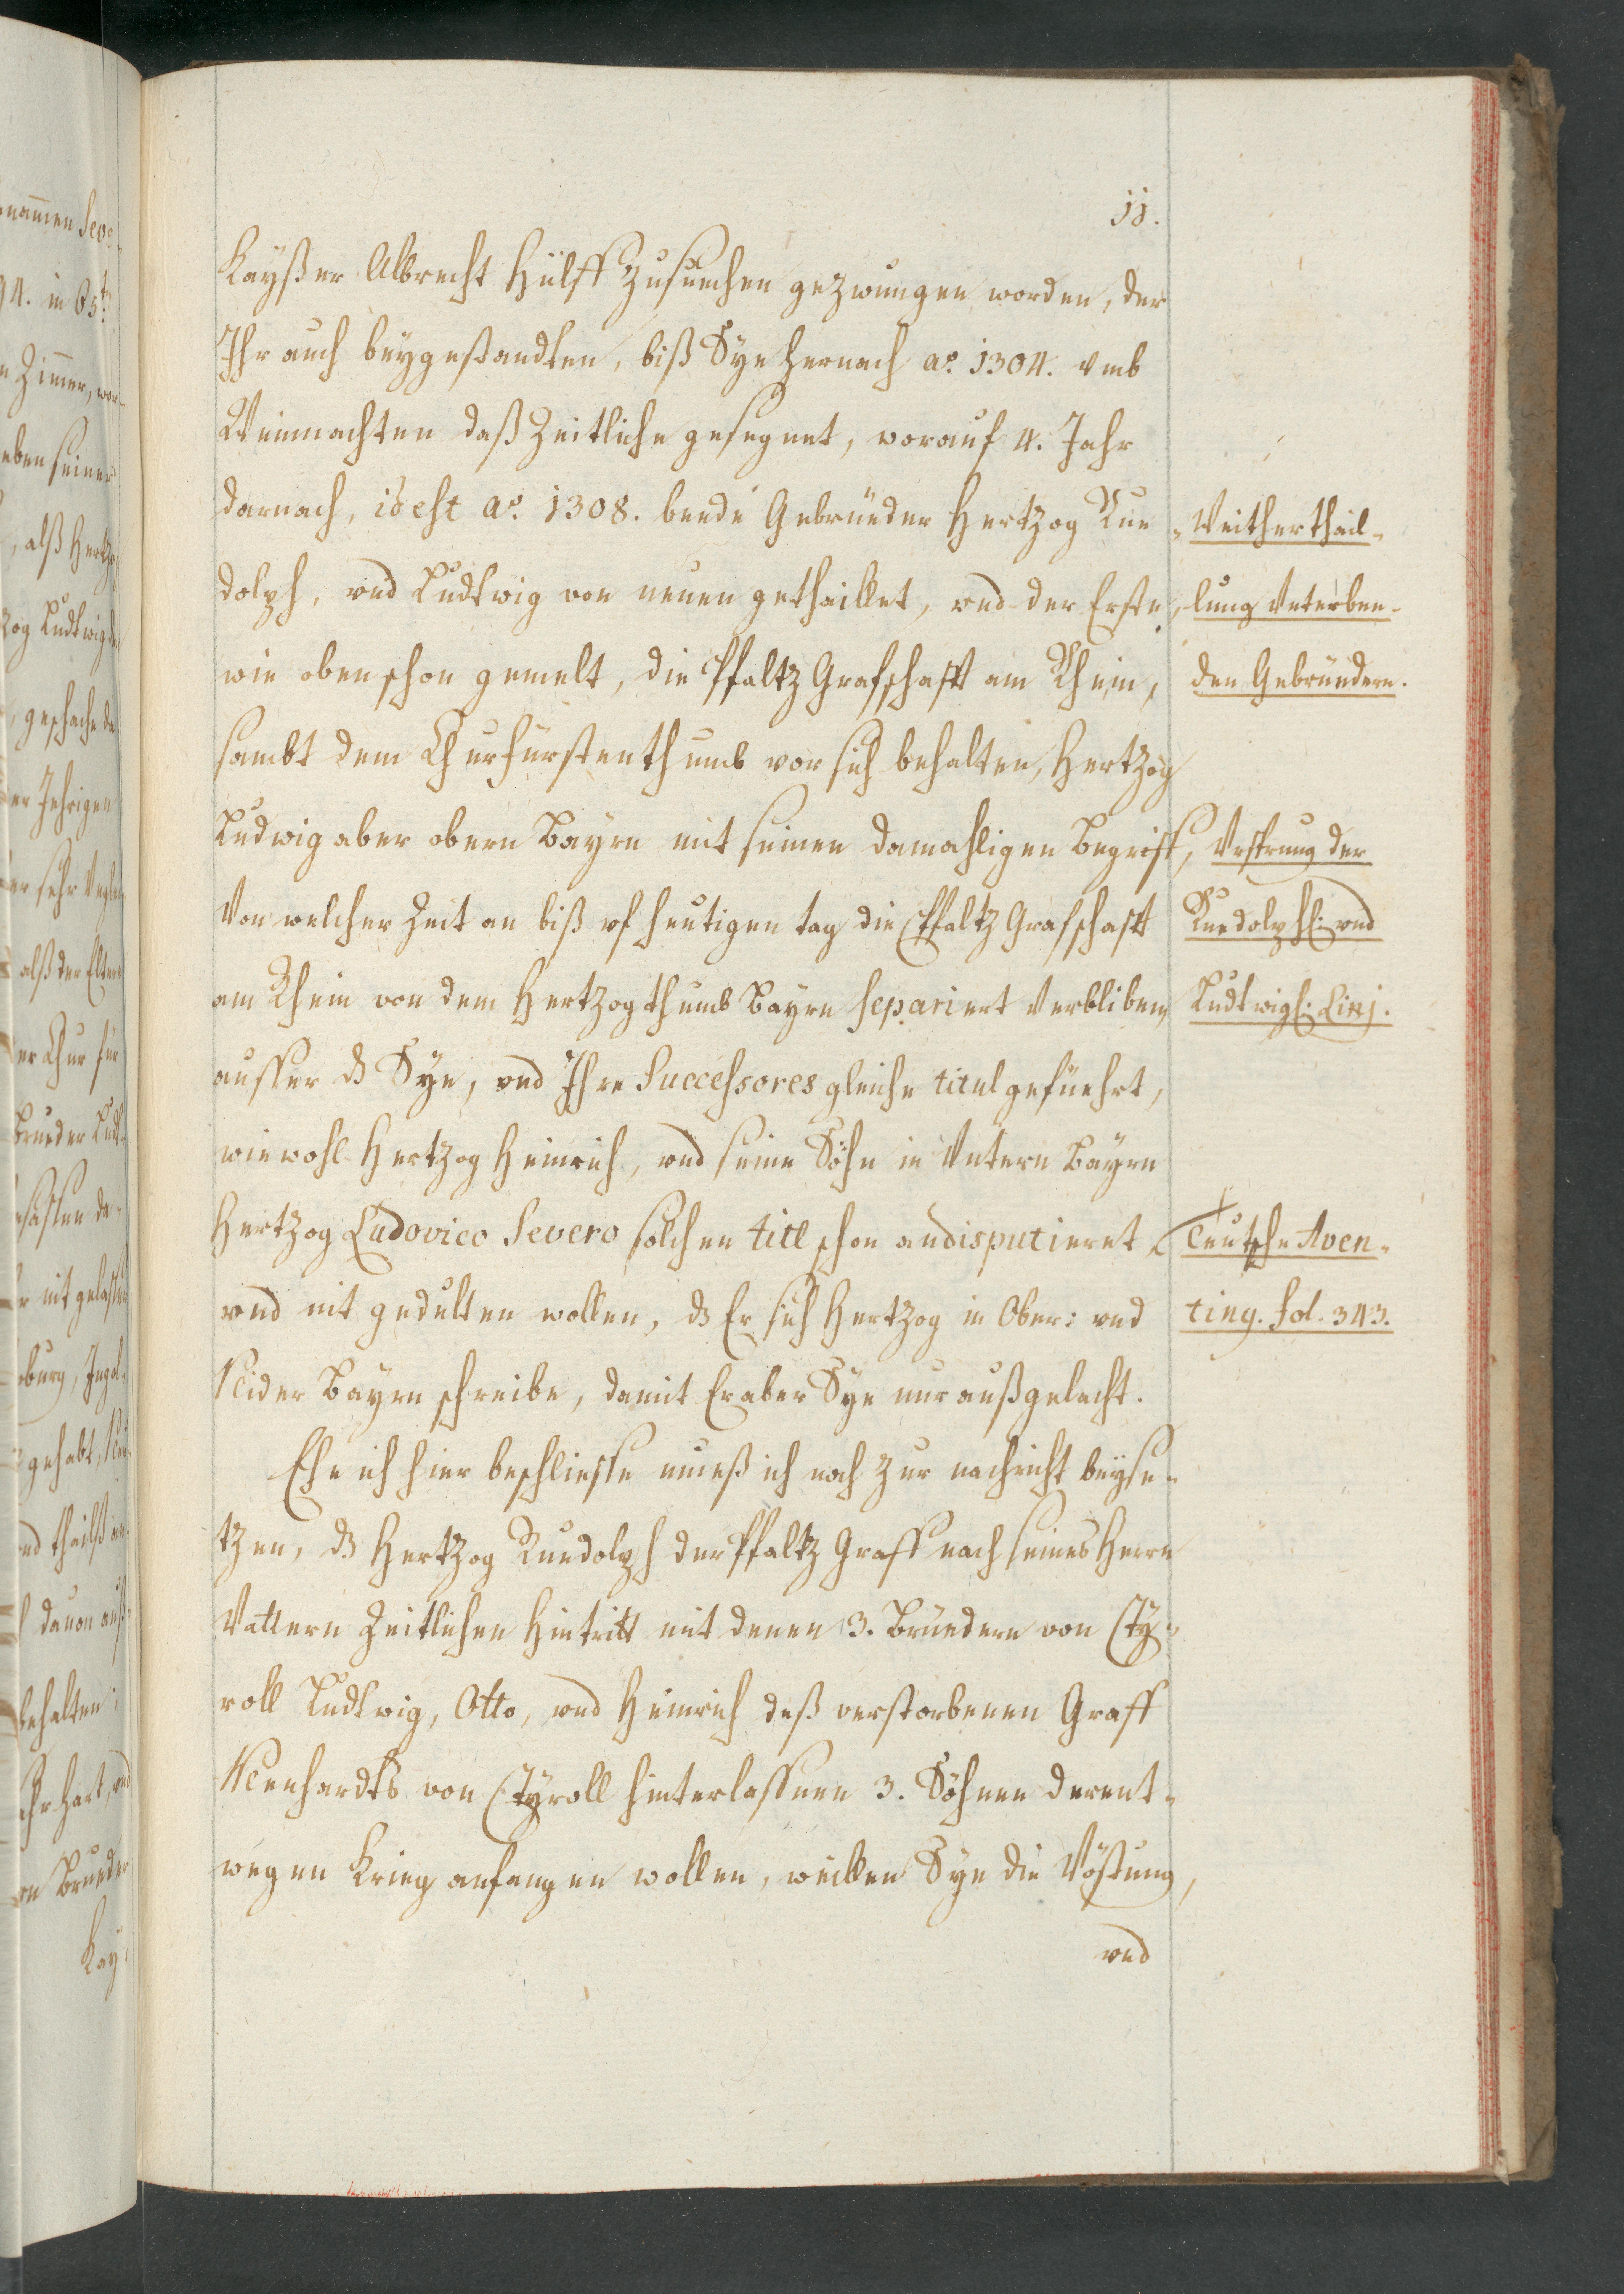 11.
Kayßer Albrecht Hülff zusuechen gezwungen worden, der
Ihr auch beygeßandten, biß Sye hernach ao. 1304. vmb
Weinnachten daß Zeitliche gesegnet, worauf 4. Jahr
darnach, id est ao. 1308. beede Gebrüeder Hertzog Rue¬
dolph, vnd Ludtwig von neuen gethaillet, vnd der Erste,
wie oben schon gemelt, die Pfaltz Grafschafft am Rhein,
sambt dem Churfürstenthumb vor sich behalten, Hertzog
Ludwig aber obern Bayrn mit seinen damahligen Begriff,
Von welcher Zeit an biß vf heutigen tag die Pfaltz Grafschafft
am Rhein von dem Hertzogthumb Bayrn separiert Verbliben,
ausser dz Sye, vnd Ihre Successores gleiche titul gefüehrt,
wiewohl Hertzog Heinrich, vnd seine Söhn in Vntern Bayrn
Hertzog Ludovico Severo solchen titl schon andisputieret,
vnd nit gedulten wollen, dz Er sich Hertzog in Ober: vnd
Nider Bayrn schreibe, damit Er aber Sye nur außgelacht.
Ehe ich hier beschliesse mueß ich noch zur nachricht beyse¬
tzen, dz Hertzog Ruedolph der Pfaltz Graff nach seines Herrn
Vattern Zeitlichen Hintritt mit denen 3. Brüedern von Ty¬
roll Ludtwig, Otto, vnd Heinrich deß verstorbenen Graff
Menhardts von Tyroll hinterlassnen 3. Söhnen derent¬
wegen Krieg anfangen wollen, weillen Sye die Vöstung,
vnd
Weither thail¬
lung Vnter been¬
den Gebrüedern.
Vrsprung der
Ruedolphl: vnd
Ludtwigl: Linj.
Teutsche Aven¬
ting. fol. 343.